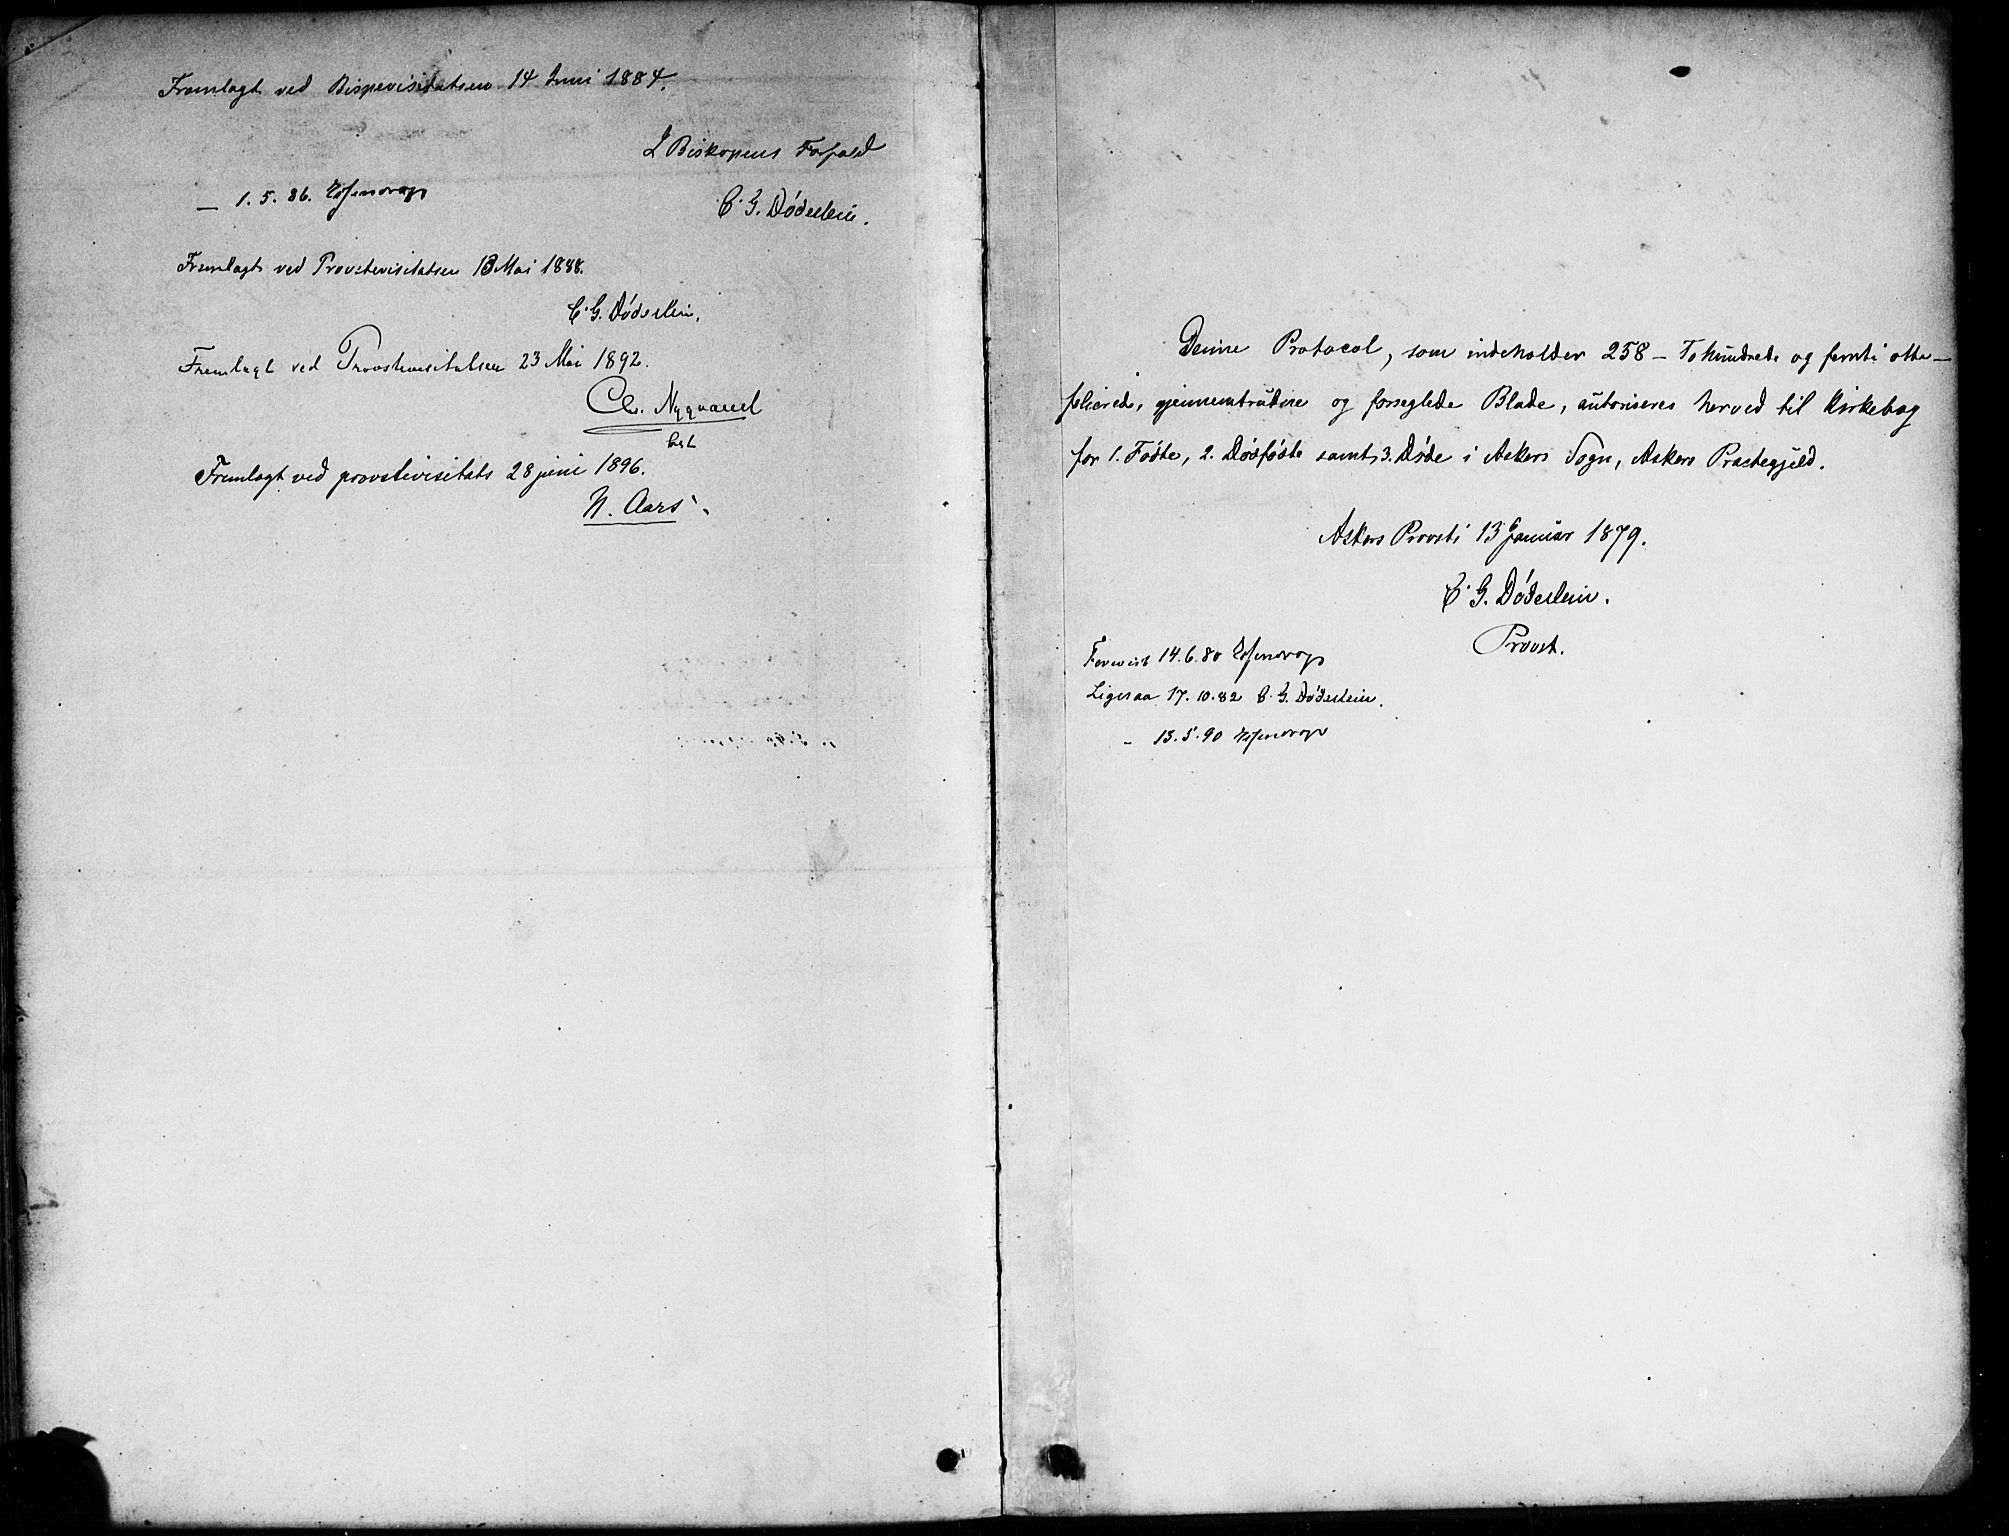 Fremlagt ved Bispevisitatsen 14 Juni 1884.
I Biskopens Forfald
C. G. Døderlein.
— 1.5.86. Essendrop
Fremlagt ved Provstevisitatsen 13 Mai 1888.
C. G. Døderlein.
Fremlagt ved Provstevisitatsen 23 Mai 1892.
Nygaard
Fremlagt ved provstevisitats 28 juni 1896.
N. Aars.
Denne Protocol, som indeholder 258 — Tohundrede og femti otte —
folierede, gjennemtrukne og forseglede Blade, autoriseres herved til Kirkebog
for 1. Fødte, 2. Dødfødte samt 3. Døde i Askers Sogn, Askers Præstegjeld.
Askers Provsti 13 Januar 1879.
C. G. Døderlein.
Provst.
Forevist 14.6.80 Essendrop
Ligesaa 17.10.82 C. G. Døderlein.
— 13.5.90 Essendrop